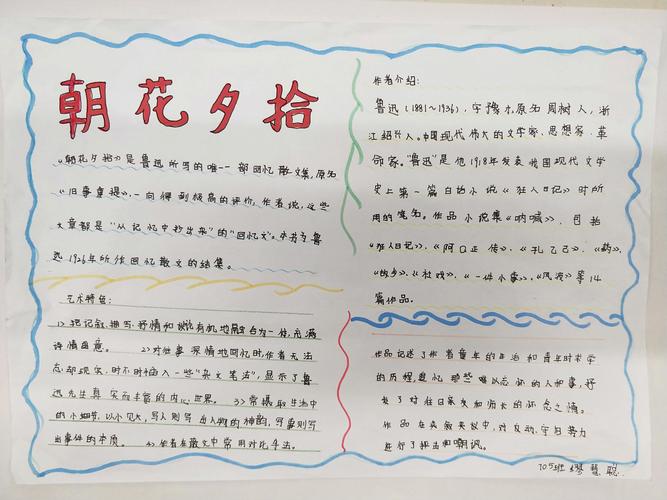 朝花夕拾
《朝花夕拾》是鲁迅所写的唯一一部回忆散文集,原名
《旧事重提》,一向得到极高的评价,作者说,这些
文章都是“从记忆中抄出来”的“回忆文”。本书为鲁
迅1926年所作回忆散文的结集。
艺术特色:
1)把记叙、描写、抒情和议论有机地融合为一体,充满
诗情画意。 2)对往事深情地回忆时,作者无法
忘却现实,时不时插入一些“杂文笔法”,显示了鲁
迅先生真实而丰富的内心世界。 3)常摄取生活中
的小细节,以小见大,写人则写出人物的神韵,写事则写
出事件的本质。 4)作者在散文中常用对比手法。
作者介绍:
鲁迅(1881~1936),字豫才,原名周树人,浙
江绍兴人。中国现代伟大的文学家、思想家、革
命家。“鲁迅”是他1918年发表我国现代文学
史上第一篇白话小说《狂人日记》时所
用的笔名。作品小说集《呐喊》,包括
《狂人日记》、《阿Q正传》、《孔乙己》、《药》、
《故乡》、《社戏》、《一件小事》、《风波》等14
篇作品。
作品记述了作者童年的生活和青年时求学
的历程,追忆那些难以忘怀的人和事,抒
发了对往日亲友和师长的怀念之情。
作品在夹叙夹议中,对反动、守旧势力
进行了抨击和嘲讽。
705班 缪慧聪